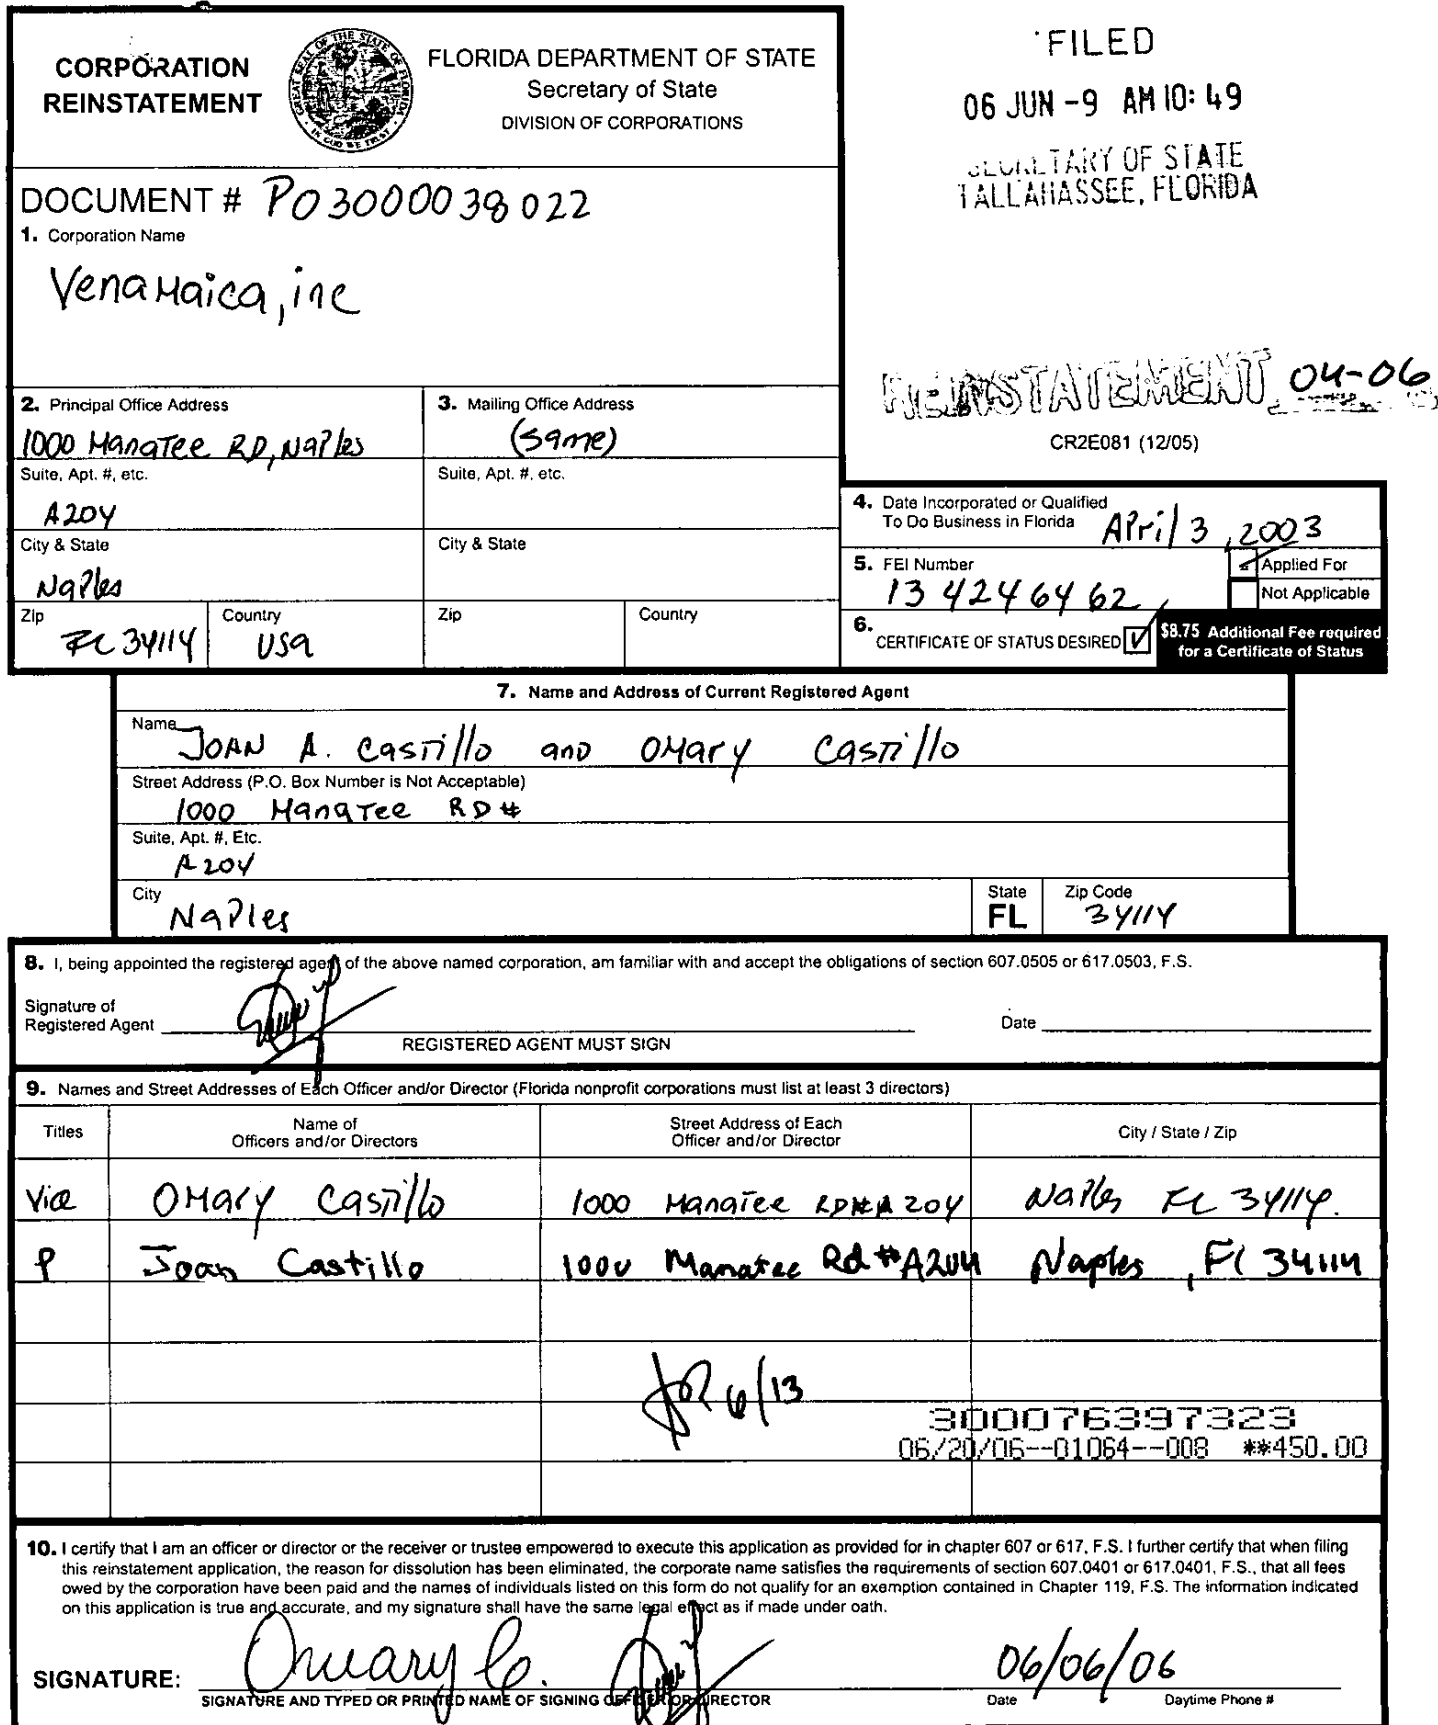 CORPORATION
REINSTATEMENT
GREAT SEAL OF THE STATE OF FLORIDA
IN GOD WE TRUST
FLORIDA DEPARTMENT OF STATE
Secretary of State
DIVISION OF CORPORATIONS
FILED
06 JUN -9 AM 10: 49
SECRETARY OF STATE
TALLAHASSEE, FLORIDA
DOCUMENT # P03000038022
1. Corporation Name
Venamaica, inc
REINSTATEMENT 04-06
CR2E081 (12/05)
2. Principal Office Address
1000 Manatee RD, Naples
3. Mailing Office Address
(same)
Suite, Apt. #, etc.
A204
Suite, Apt. #, etc.
City & State
Naples
City & State
Zip
FL 34114
Country
USA
Zip
Country
4. Date Incorporated or Qualified
To Do Business in Florida April 3, 2003
5. FEI Number
13 4246462
Applied For
Not Applicable
6. CERTIFICATE OF STATUS DESIRED
$8.75 Additional Fee required
for a Certificate of Status
7. Name and Address of Current Registered Agent
Name
JOAN A. Castillo and OMary Castillo
Street Address (P.O. Box Number is Not Acceptable)
1000 Manatee RD #
Suite, Apt. #, Etc.
A204
City
Naples
State
FL
Zip Code
34114
8. I, being appointed the registered agent of the above named corporation, am familiar with and accept the obligations of section 607.0505 or 617.0503, F.S.
Signature of
Registered Agent
Date
REGISTERED AGENT MUST SIGN
9. Names and Street Addresses of Each Officer and/or Director (Florida nonprofit corporations must list at least 3 directors)
Titles
Name of
Officers and/or Directors
Street Address of Each
Officer and/or Director
City / State / Zip
Vice OMary Castillo 1000 Manatee RD#A204 Naples FL 34114.
P Joan Castillo 1000 Manatee Rd #A204 Naples, Fl 34114
6/13
300076397323
06/20/06--01064--008 **450.00
10. I certify that I am an officer or director or the receiver or trustee empowered to execute this application as provided for in chapter 607 or 617, F.S. I further certify that when filing
this reinstatement application, the reason for dissolution has been eliminated, the corporate name satisfies the requirements of section 607.0401 or 617.0401, F.S., that all fees
owed by the corporation have been paid and the names of individuals listed on this form do not qualify for an exemption contained in Chapter 119, F.S. The information indicated
on this application is true and accurate, and my signature shall have the same legal effect as if made under oath.
SIGNATURE: Omary C. 06/06/06
SIGNATURE AND TYPED OR PRINTED NAME OF SIGNING OFFICER OR DIRECTOR
Date
Daytime Phone #